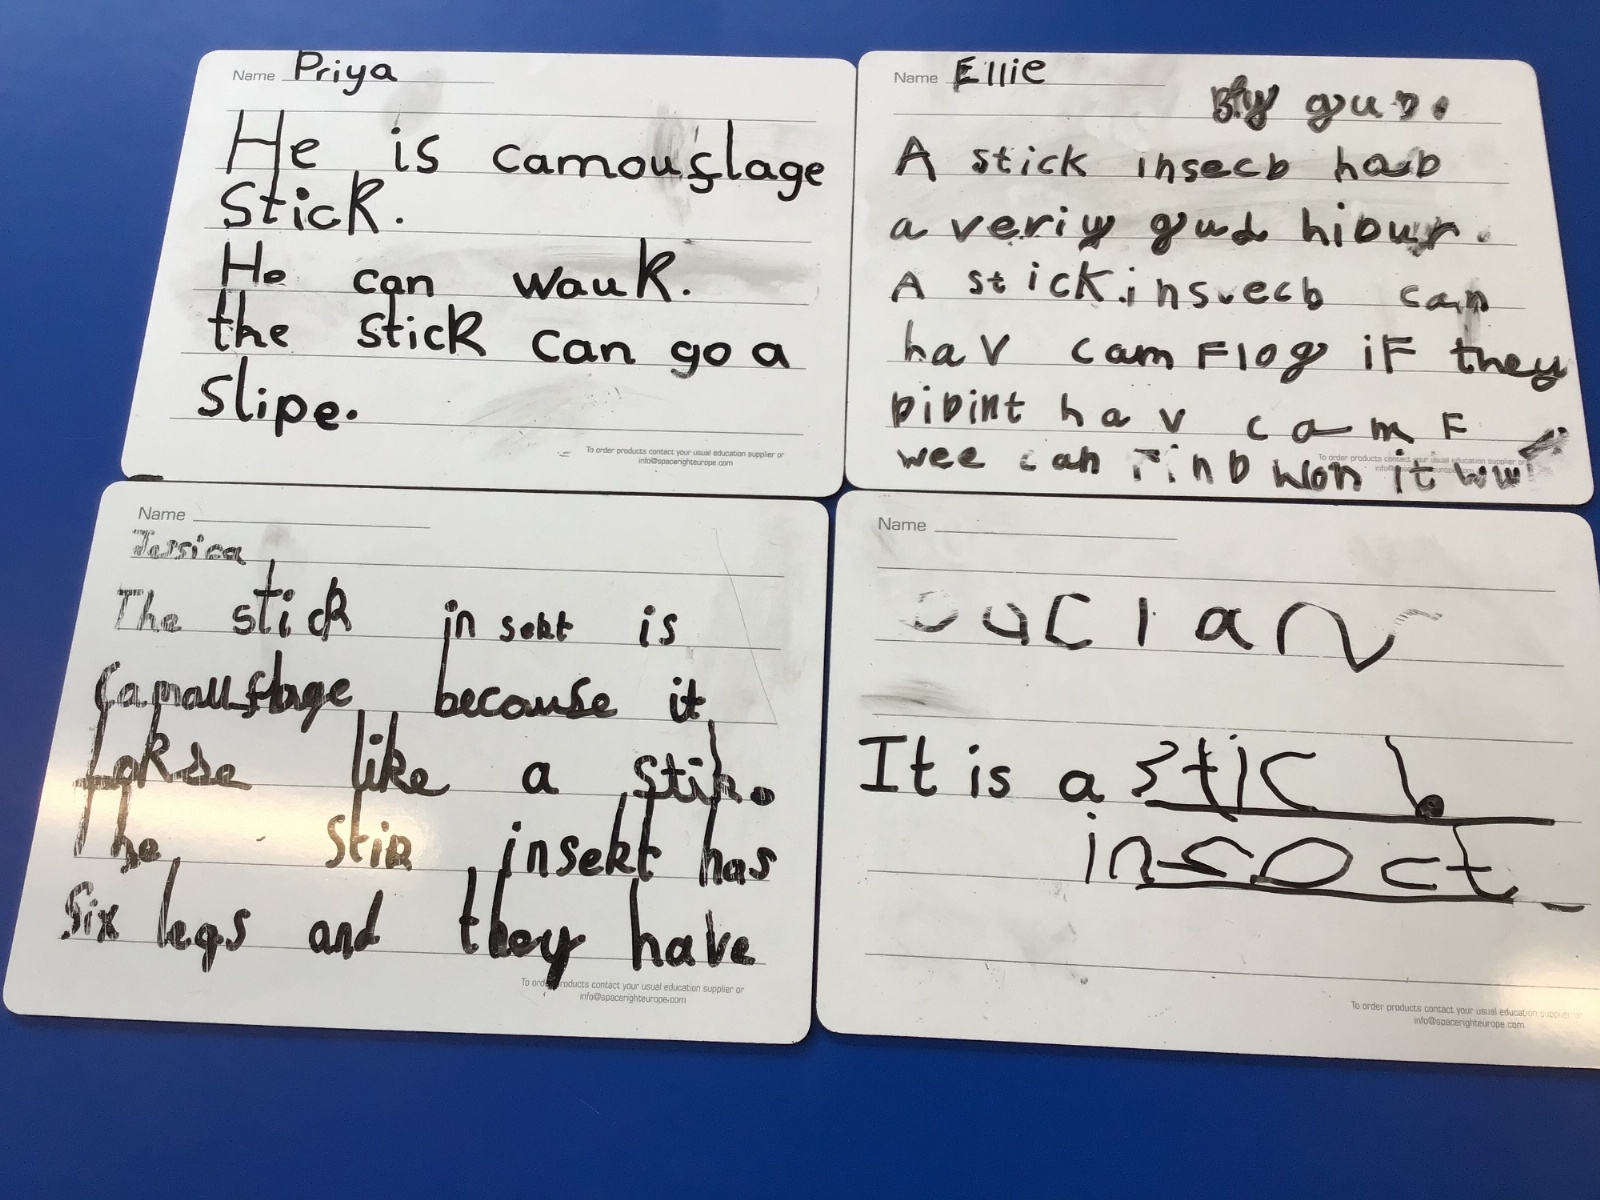 Name Priya
He is camouflage
Stick.
He can wauk.
the stick can go a
Slipe.
To order products contact your usual education supplier or
info@spacerighteurope.com
Name Ellie
By gus.
A stick insecb hab
a veriy gud hibur.
A stick.insecb can
hav camFlog iF they
bibint hav camF
wee can Finb won it
To order products contact your usual education supplier or
Name
Jessica
The stick insekt is
camouflage because it
lokse like a stik.
The stik insekt has
Six legs and they have
To order products contact your usual education supplier or
info@spacerighteurope.com
Name
It is a stick.
insect
To order products contact your usual education supplier or
info@spacerighteurope.com